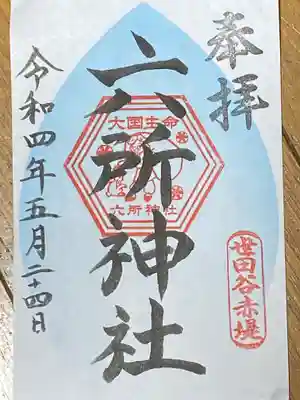 奉拝
六所神社
大国主命
六所神社
世田谷赤堤
令和四年五月二十四日